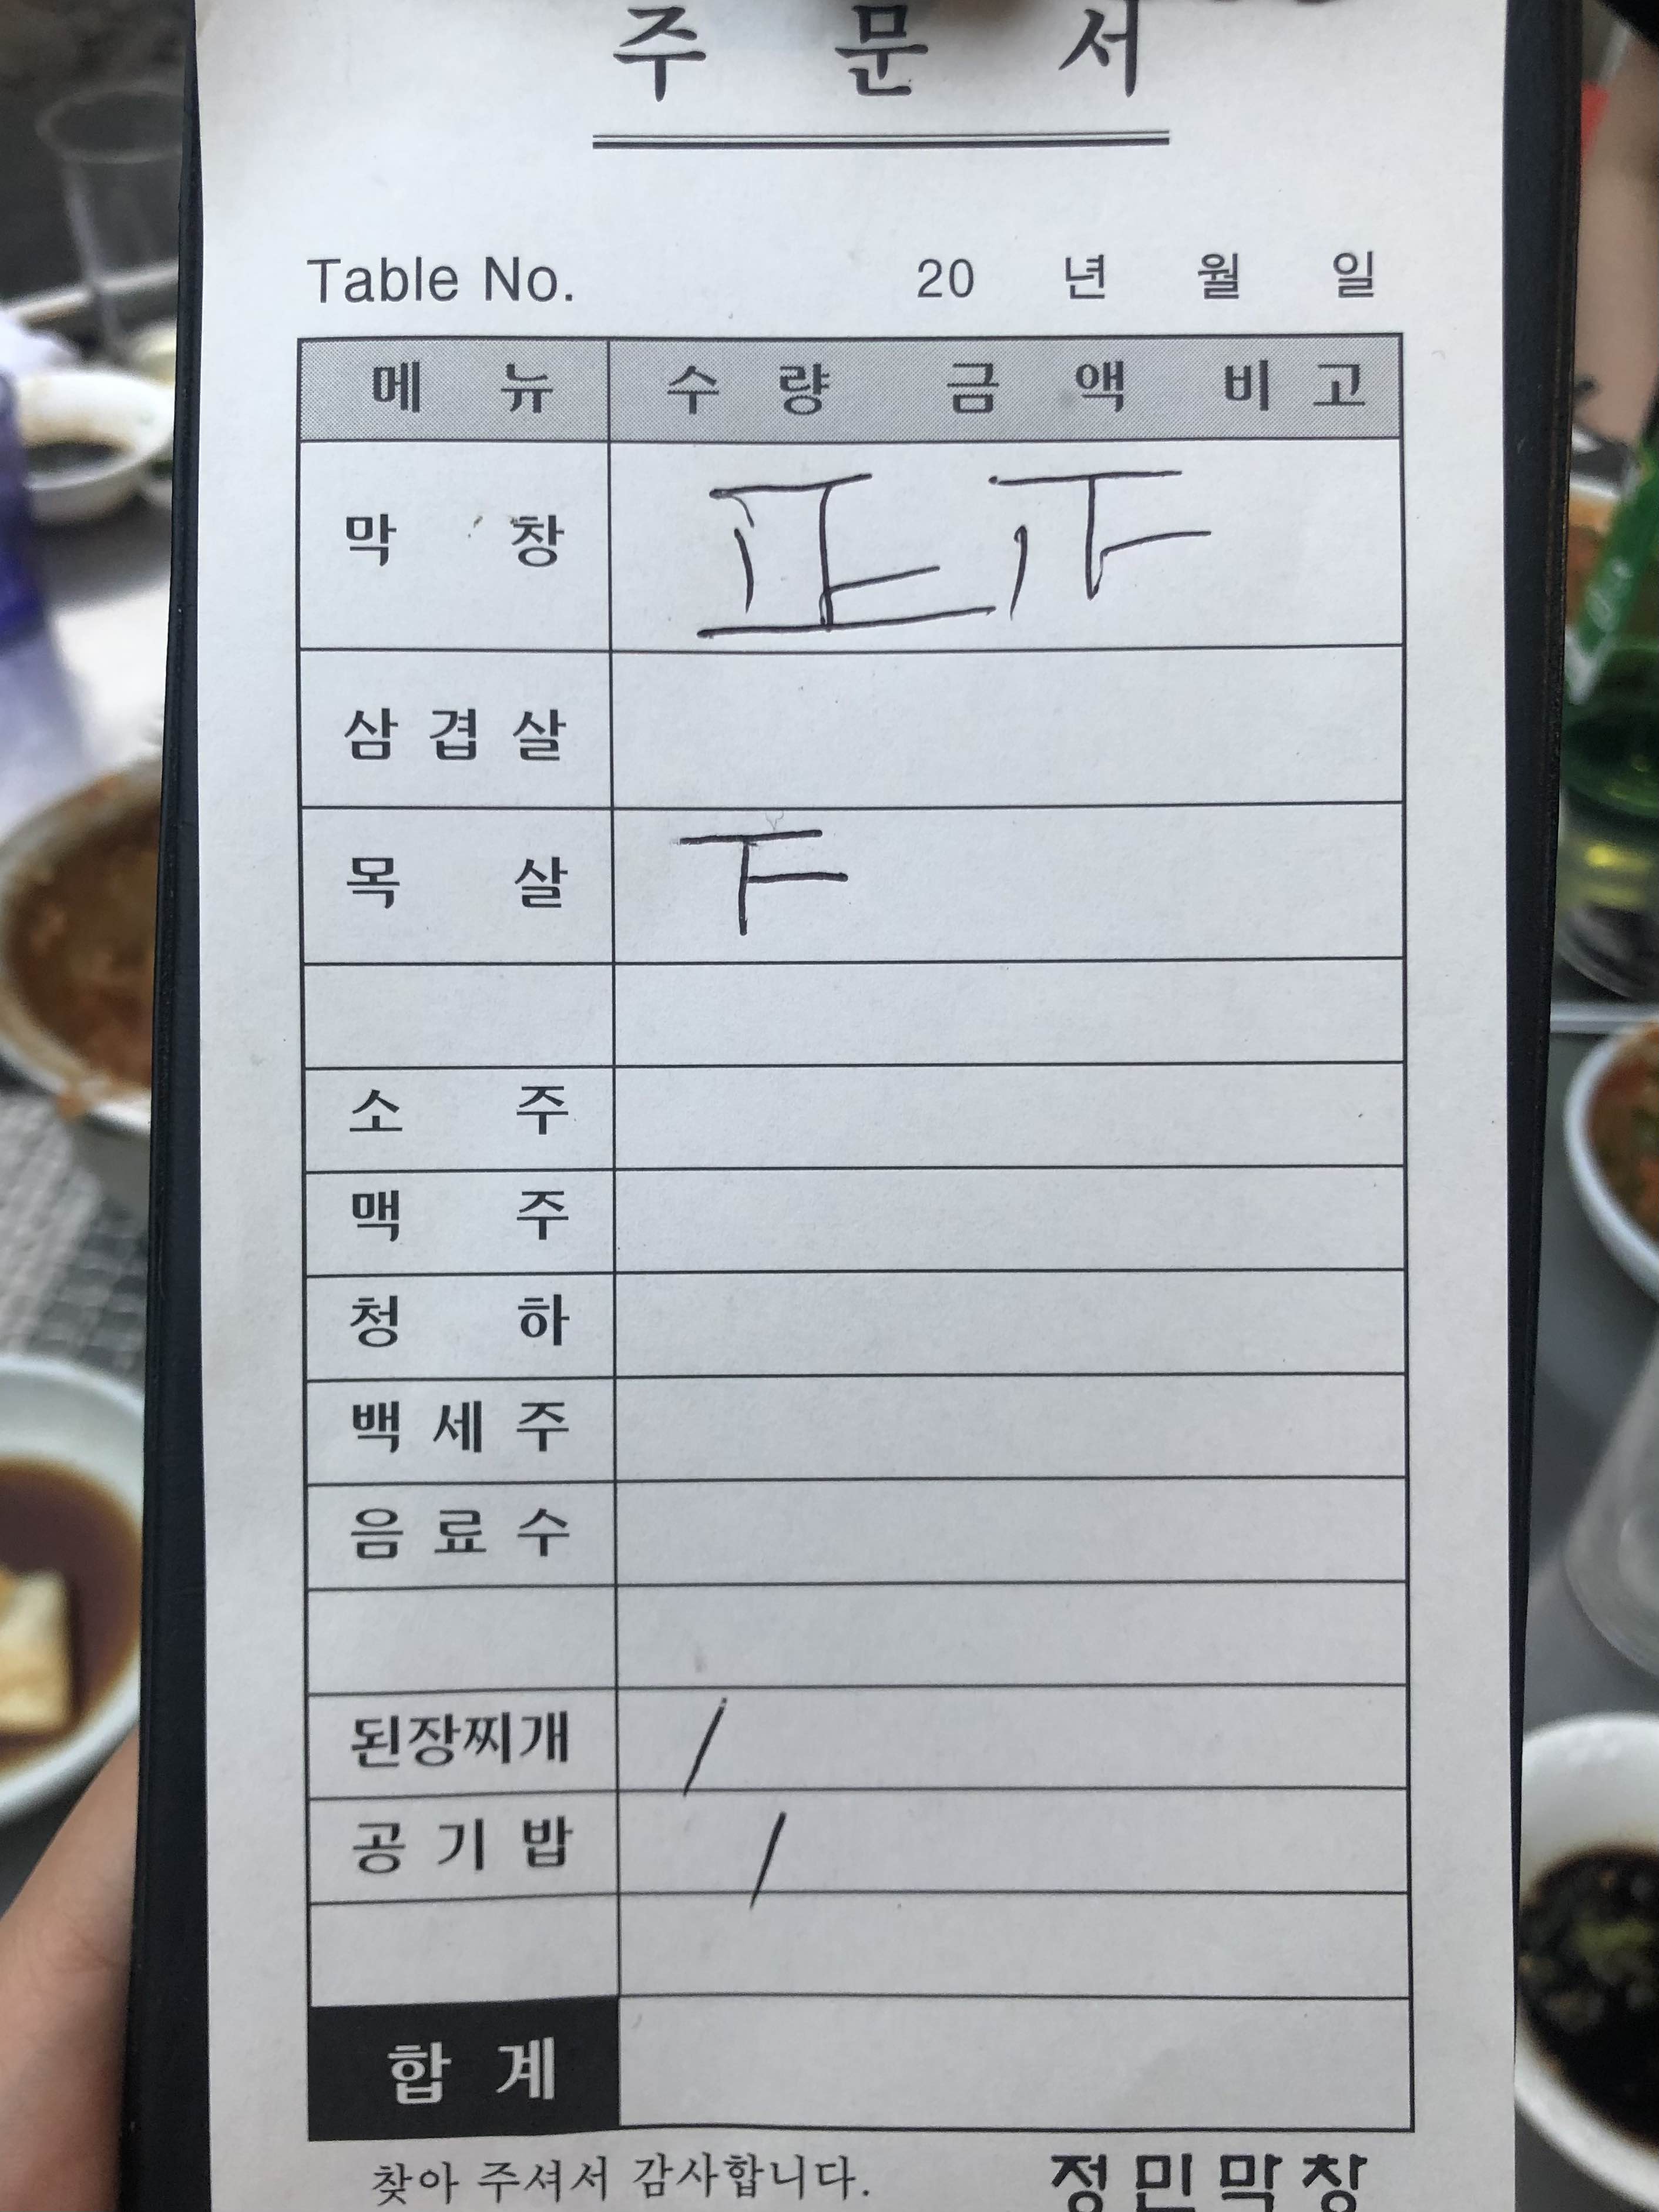 주 문 서
Table No. 20 년 월 일
메 뉴 수 량 금 액 비 고
막 창 正 下
삼 겹 살
목 살 下
소 주
맥 주
청 하
백 세 주
음 료 수
된장찌개 /
공 기 밥 /
합 계
찾아 주셔서 감사합니다. 정민막창